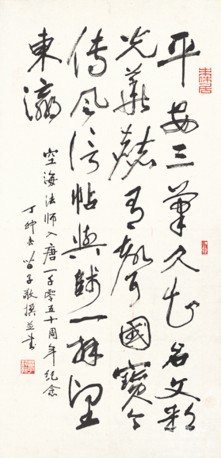 平安三筆久知名文彩
光華赫有聲國寶今
傳風信帖與一拜望
東瀛
空海法師入唐一千零五十周年紀念
丁卯春子敬撰並書